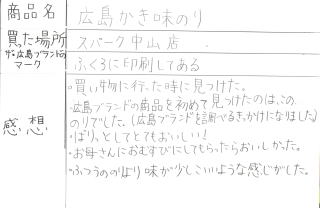 商品名 広島かき味のり
買った場所 スパーク中山店
ザ・広島ブランドのマーク ふくろに印刷してある
感想
・買い物に行った時に見つけた。
・広島ブランドの商品を初めて見つけたのは、この
のりでした。(広島ブランドを調べるきっかけになりました)
・ぱりっとしてとてもおいしい!
・お母さんにおむすびにしてもらったらおいしかった。
・ふつうののりより味が少しこいような感じがした。